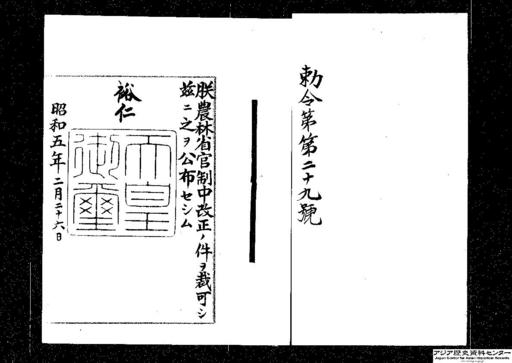 勅令第第二十九號
朕農林省官制中改正ノ件ヲ裁可シ
茲ニ之ヲ公布セシム
裕仁
天皇
御璽
昭和五年二月二十六日
アジア歴史資料センター
Japan Center for Asian Historical Records